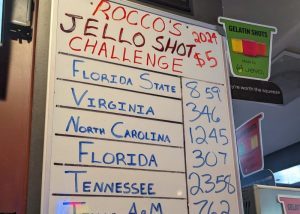 ROCCO'S 2024
JELLO SHOT $5
CHALLENGE
FLORIDA STATE 859
VIRGINIA 346
NORTH CAROLINA 1245
FLORIDA 307
TENNESSEE 2358
A&M 762
GELATIN SHOTS
you're worth the squeeze